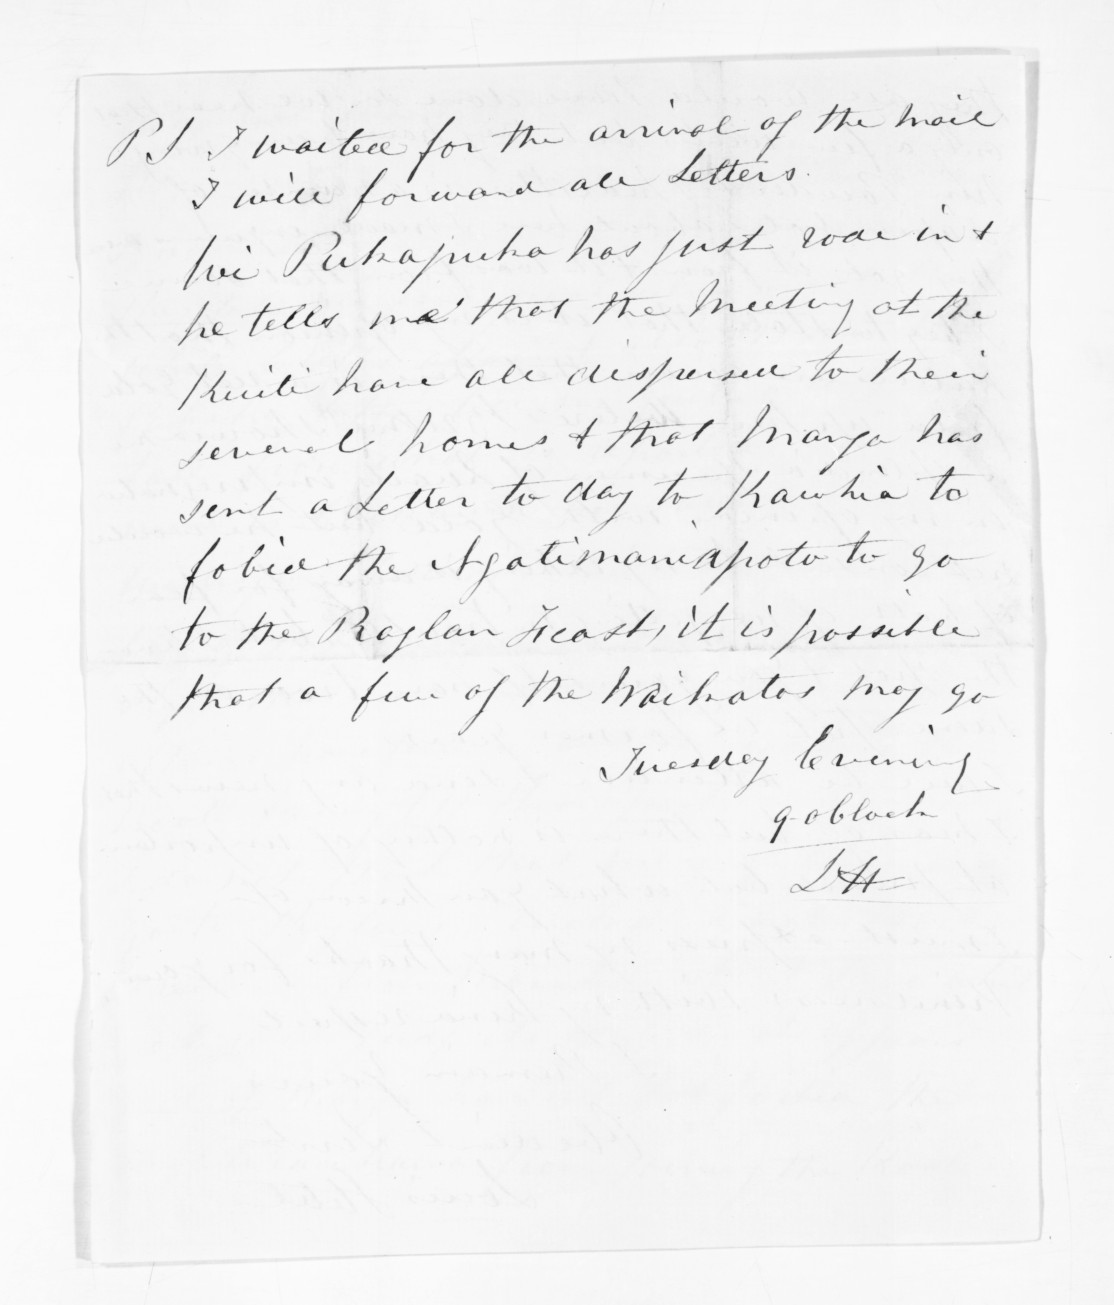 P S I waited for the arrival of the Mail
I will forward all Letters.
Wi Pukapuka has just rode in &
he tells me that the Meeting at the
Kuiti have all dispersed to their
several homes & that Manga has
sent a Letter to day to Kawhia to
fobid the Ngatimaniapoto to go
to the Raglan Feast, it is possible
that a few of the Waikatos may go
Tuesday Evening
9 oblock
L H